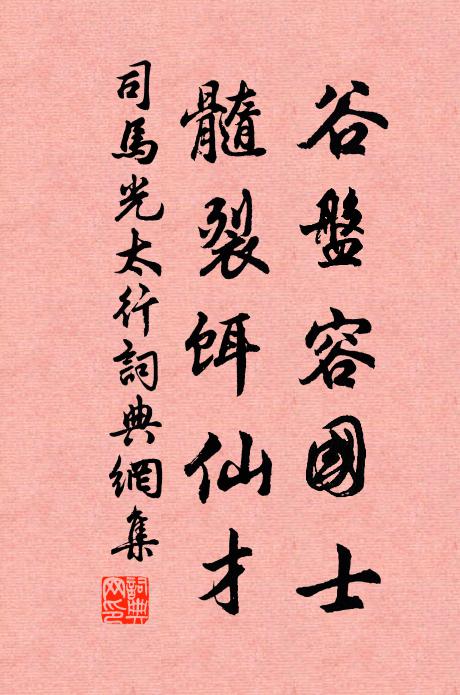 谷盤容國士
髓裂餌仙才
司馬光太行詞典網集
詞典
网印